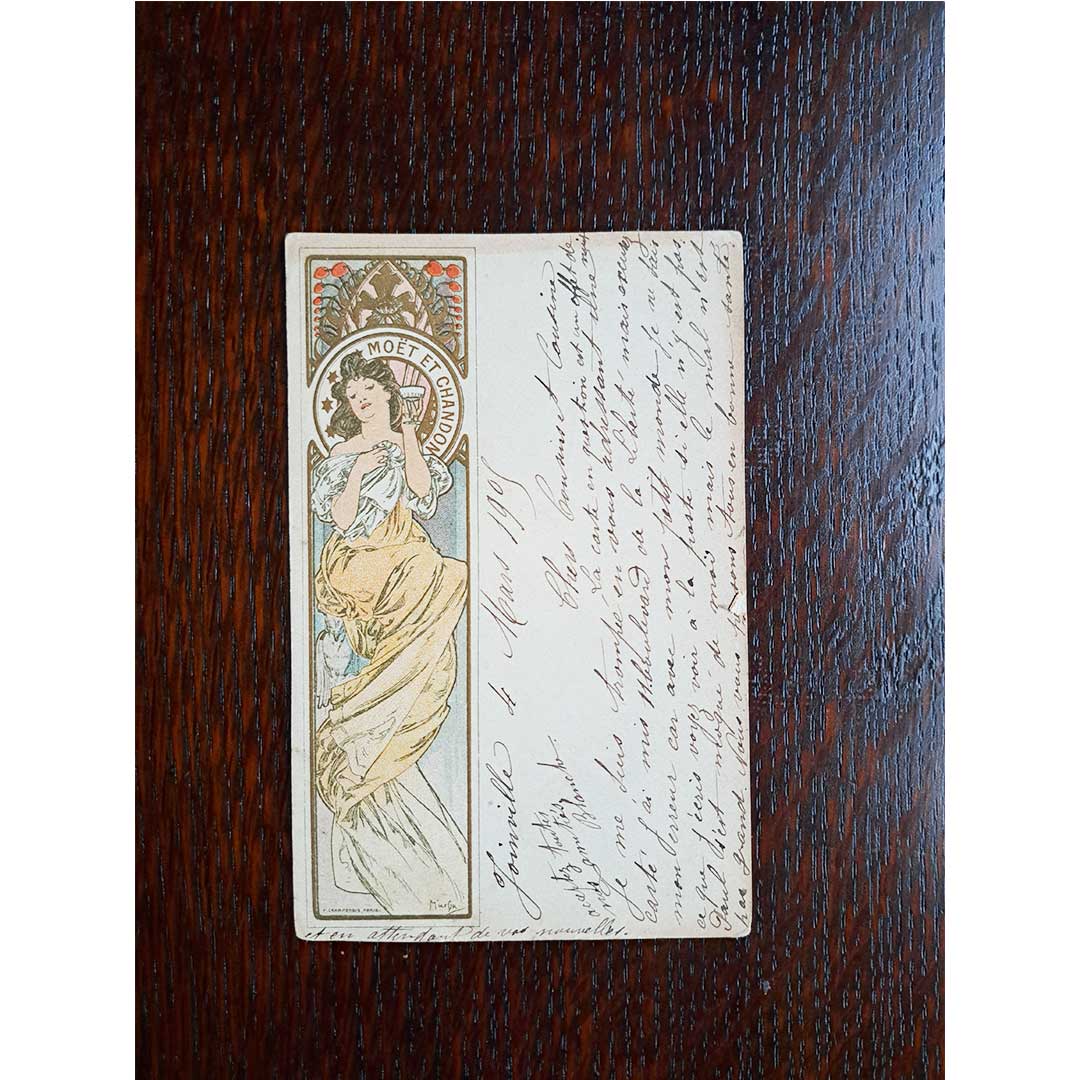 MOËT ET CHANDON
F. CHAMPENOIS, PARIS.
Mucha
Joinville le 4 Mars 1905
Chers Cousins et Cousine
La carte en question est un effet de
je me suis trompé en vous adressant une
carte j'ai mis 11 boulevard de la mais
mon erreur car avec mon petit monde je ne sais
ce que j'écris voyez voir à la poste si elle n'y est pas.
Paul s'est de quoi mais le mal n'est
pas grand. Nous vous tous en bonne santé
et en attendant de vos nouvelles.
toutes
nos amitiés
Blanche